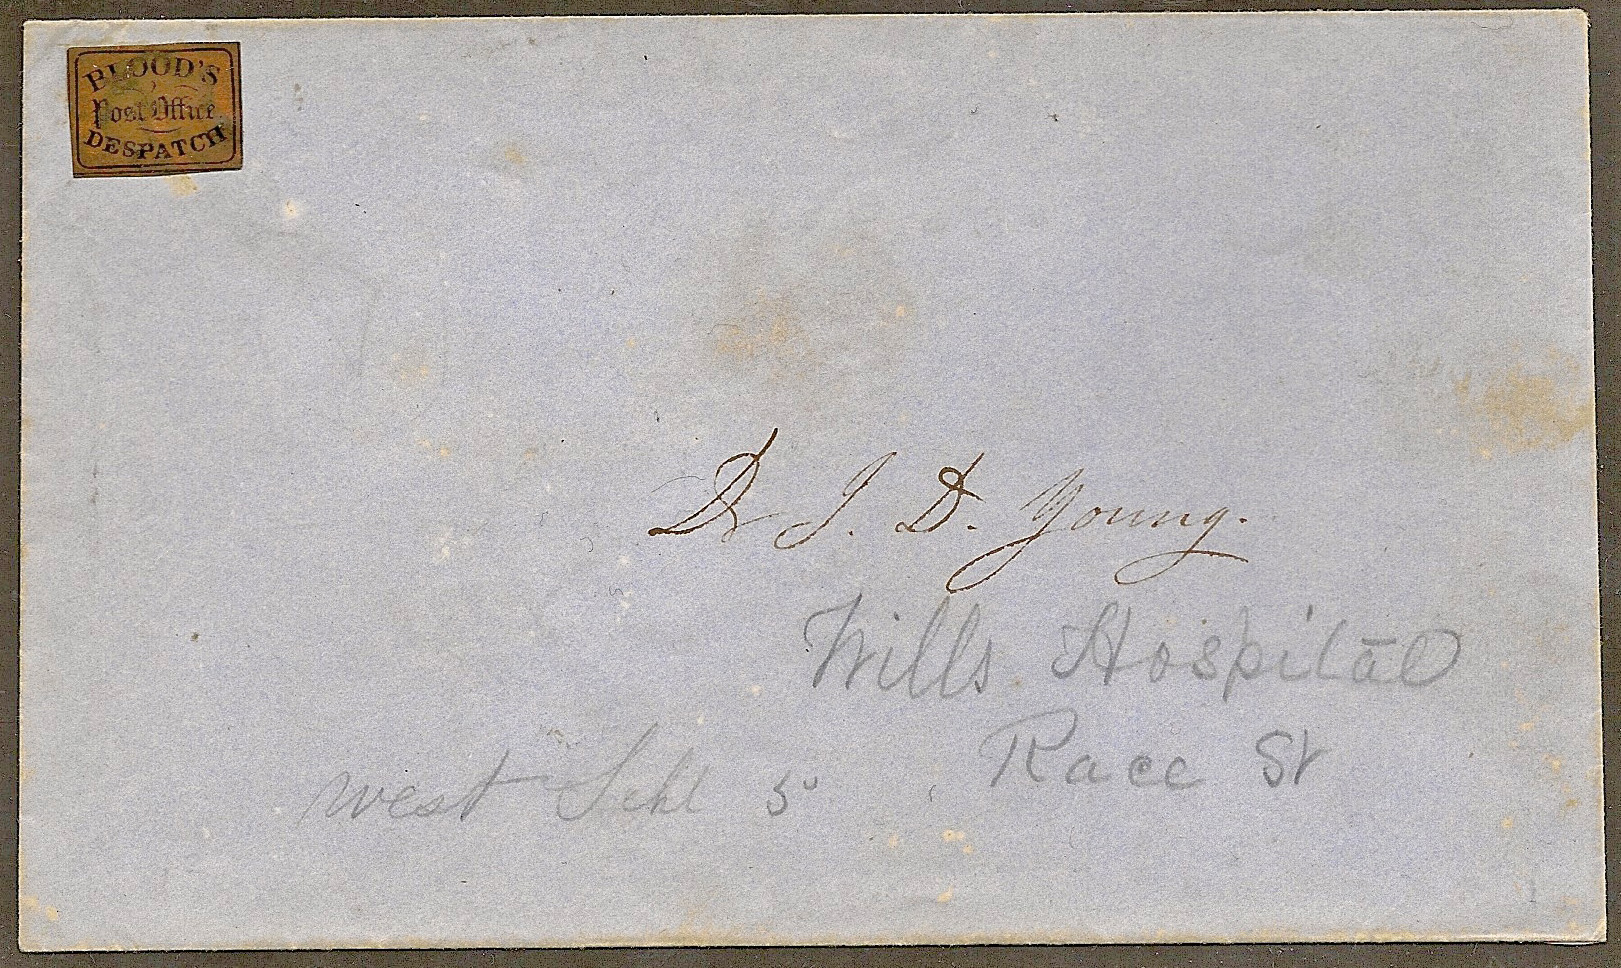 BLOOD'S
Post Office
DESPATCH
Dr J. D. Young.
Wills Hospital
Race St
west Schl 5